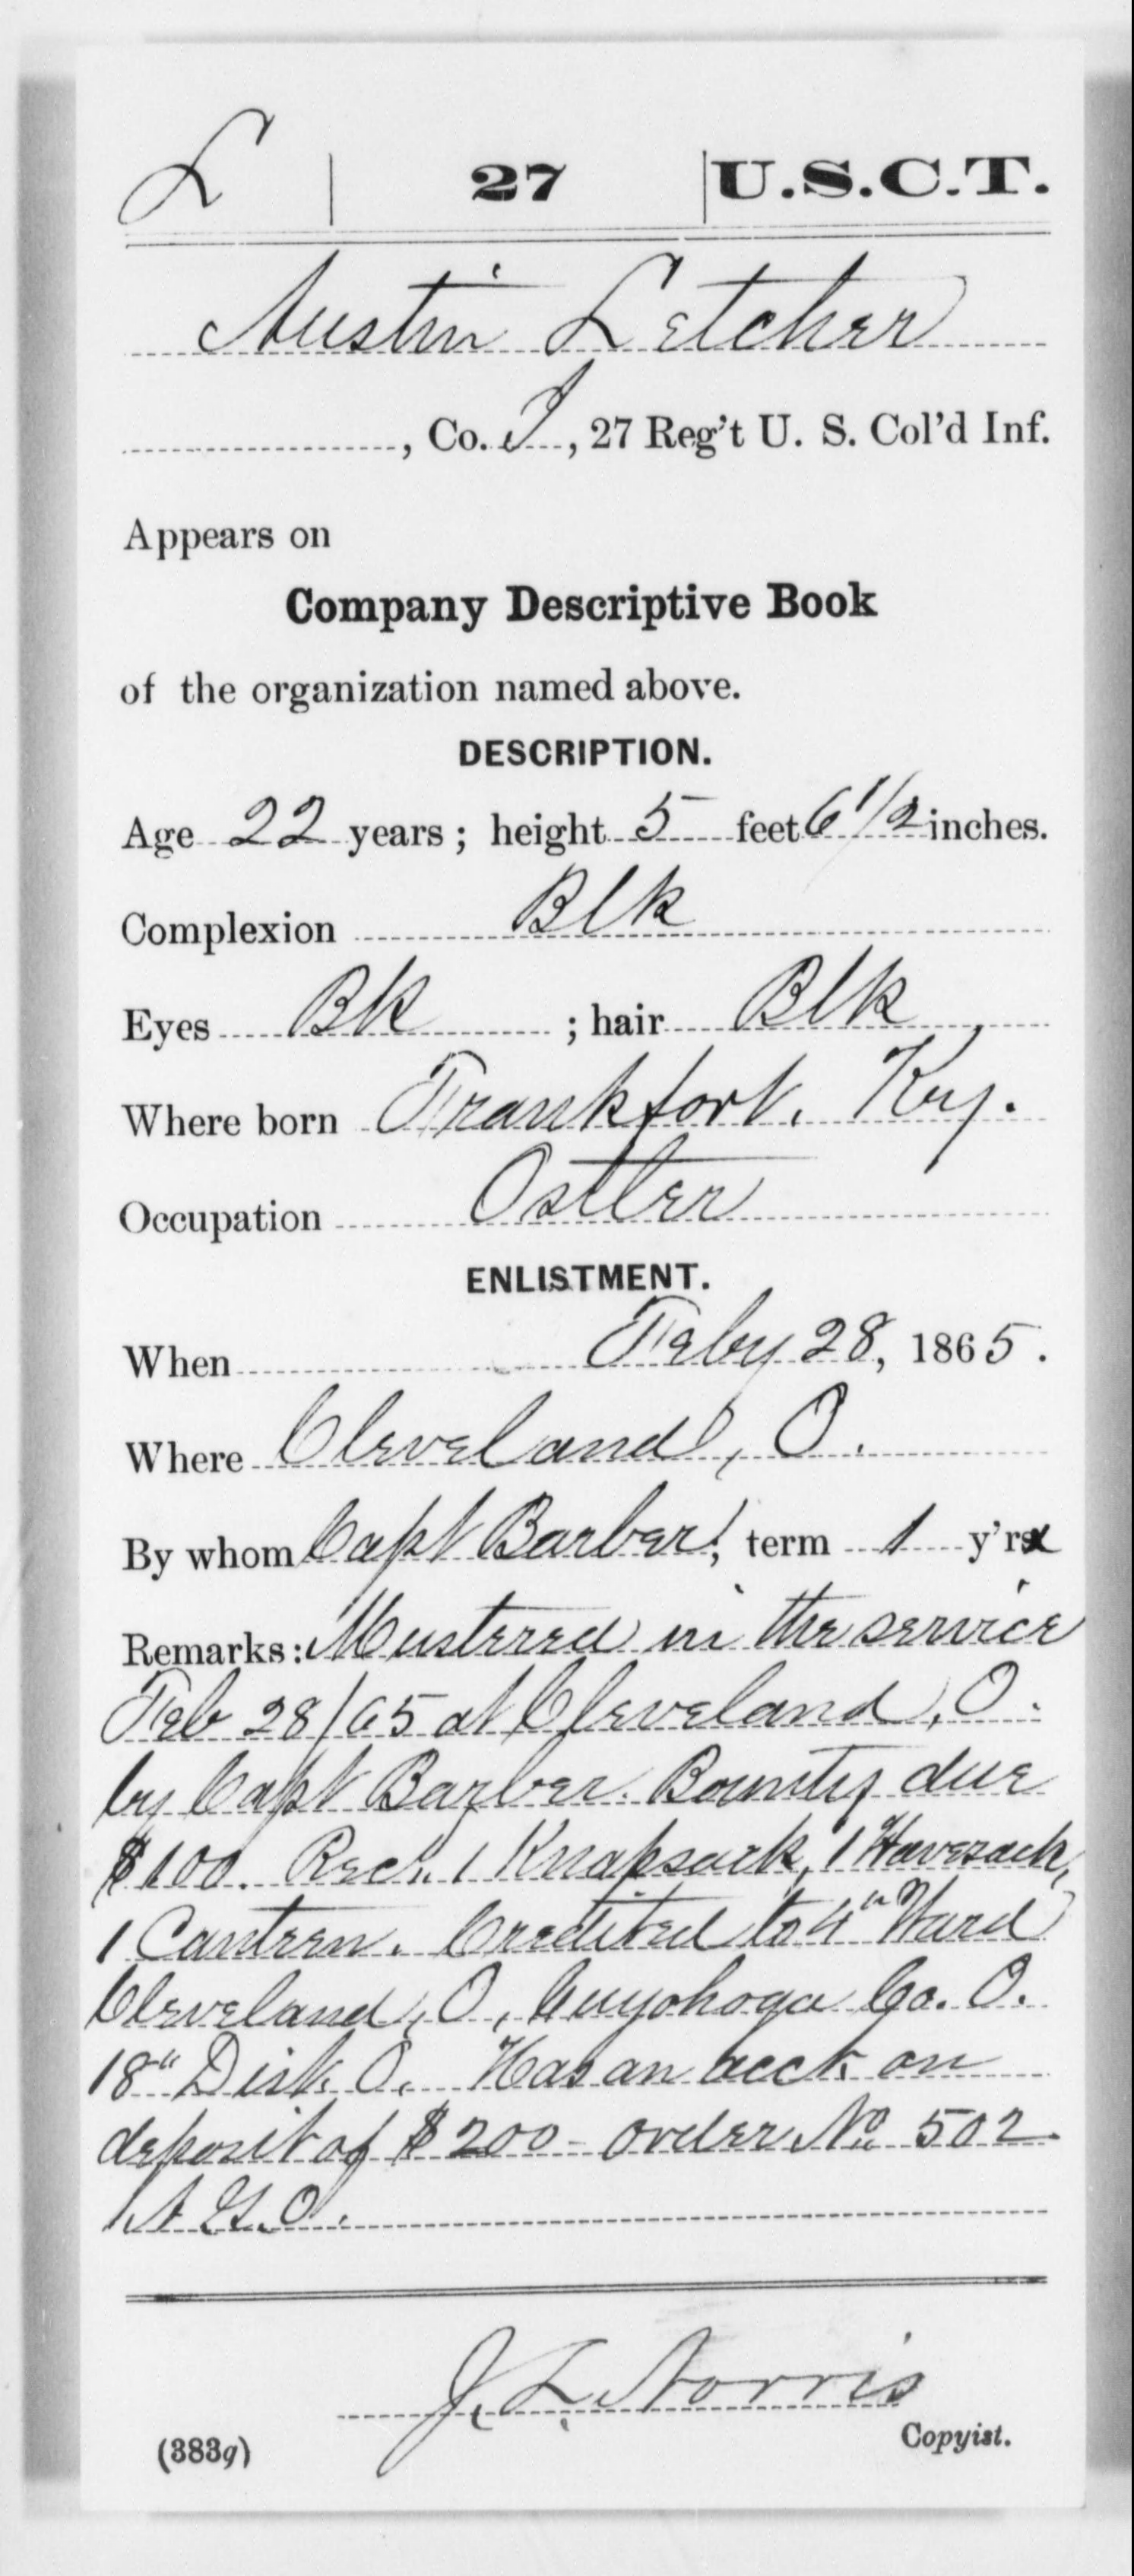 L | 27 | U.S.C.T.
Austin Letcher
, Co. I, 27 Reg't U. S. Col'd Inf.
Appears on
Company Descriptive Book
of the organization named above.
DESCRIPTION.
Age 22 years; height 5 feet 6 1/2 inches.
Complexion Blk
Eyes Bk ; hair Blk
Where born Frankfort, Ky.
Occupation Ostler
ENLISTMENT.
When Feby 28, 1865.
Where Cleveland, O.
By whom Capt Barber; term 1 y'rs
Remarks: Mustered in the service
Feb 28/65 at Cleveland, O.
by Capt Barber. Bounty due
$100. Recd. 1 Knapsack, 1 Haversack,
1 Canteen. Credited to 4" Ward
Cleveland, O, Cuyohoga Co. O.
18" Dist. O. Has an acct on
deposit of $200 - order No 502
A.G.O.
J. L. Norris
Copyist.
(383g)